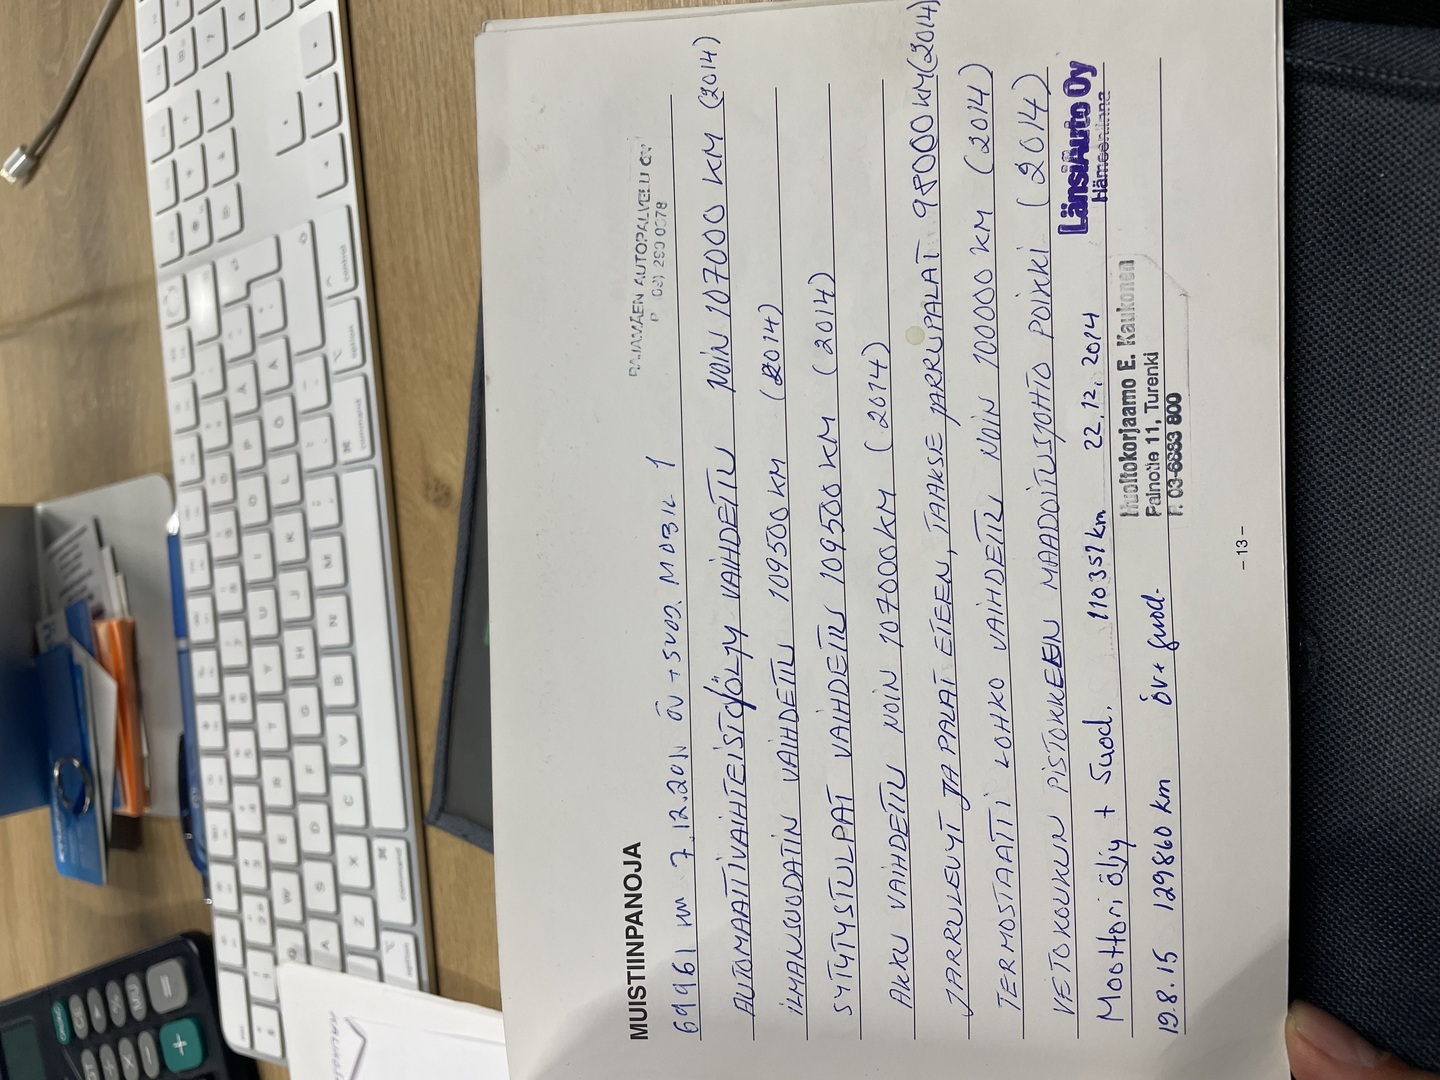 MUISTIINPANOJA
RAJAMÄEN AUTOPALVELU OY
69961 km 7.12.2011 ÖV + SUOD. MOBIL 1
AUTOMAATTIVAIHTEISTOÖLJY VAIHDETTU NOIN 107000 KM (2014)
ILMANSUODATIN VAIHDETTU 109500 KM (2014)
SYTYTYSTULPAT VAIHDETTU 109500 KM (2014)
AKKU VAIHDETTU NOIN 107000KM (2014)
JARRULEVYT JA PALAT ETEEN, TAAKSE JARRUPALAT 98000 KM (2014)
TERMOSTAATTI LOHKO VAIHDETTU NOIN 100000 KM (2014)
VETOKOUKUN PISTOKKEEN MAADOITUSJOHTO POIKKI (2014)
Moottoriöljy + Suod. 110357 km 22.12.2014
LänsiAuto Oy
Hämeenlinna
19.8.15 129860 km öv+ suod.
Huoltokorjaamo E. Kaukonen
Palnotie 11, Turenki
P. 03-6883 800
- 13 -
command
option
control